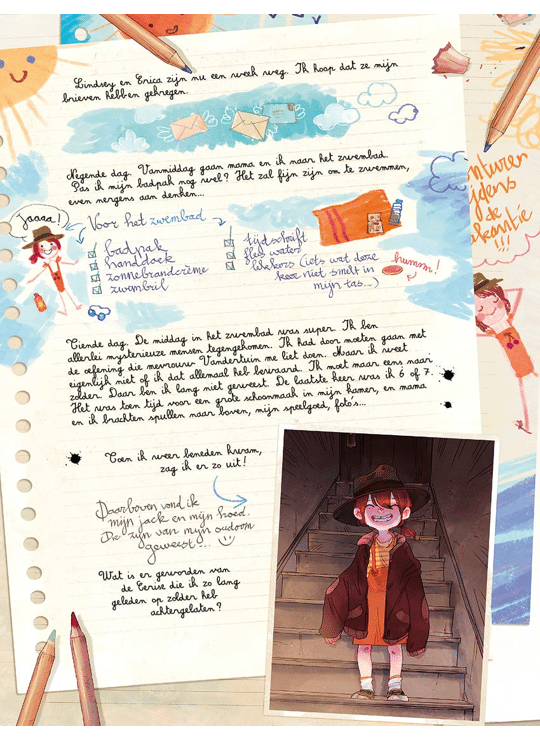 Lindsey en Erica zijn nu een week weg. Ik hoop dat ze mijn
brieven hebben gekregen.
Negende dag. Vanmiddag gaan mama en ik naar het zwembad.
Pas ik mijn badpak nog wel? Het zal fijn zijn om te zwemmen,
even nergens aan denken...
Jaaaa!
Voor het zwembad
badpak
handdoek
zonnebrandcrème
zwembril
tijdschrift
fles water
lekkers (iets wat deze
keer niet smelt in
mijn tas...)
hummm!
Tiende dag. De middag in het zwembad was super. Ik ben
allerlei mysterieuze mensen tegengekomen. Ik had door moeten gaan met
de oefening die mevrouw Vandertuin me liet doen. Maar ik weet
eigenlijk niet of ik dat allemaal heb bewaard. Ik moet maar eens naar
zolder. Daar ben ik lang niet geweest. De laatste keer was ik 6 of 7.
Het was toen tijd voor een grote schoonmaak in mijn kamer, en mama
en ik brachten spullen naar boven, mijn speelgoed, foto's...
Toen ik weer beneden kwam,
zag ik er zo uit!
Daarboven vond ik
mijn jack en mijn hoed.
Die zijn van mijn oudoom
geweest...
Wat is er geworden van
de Cerise die ik zo lang
geleden op zolder heb
achtergelaten?
de
kantie
!!!